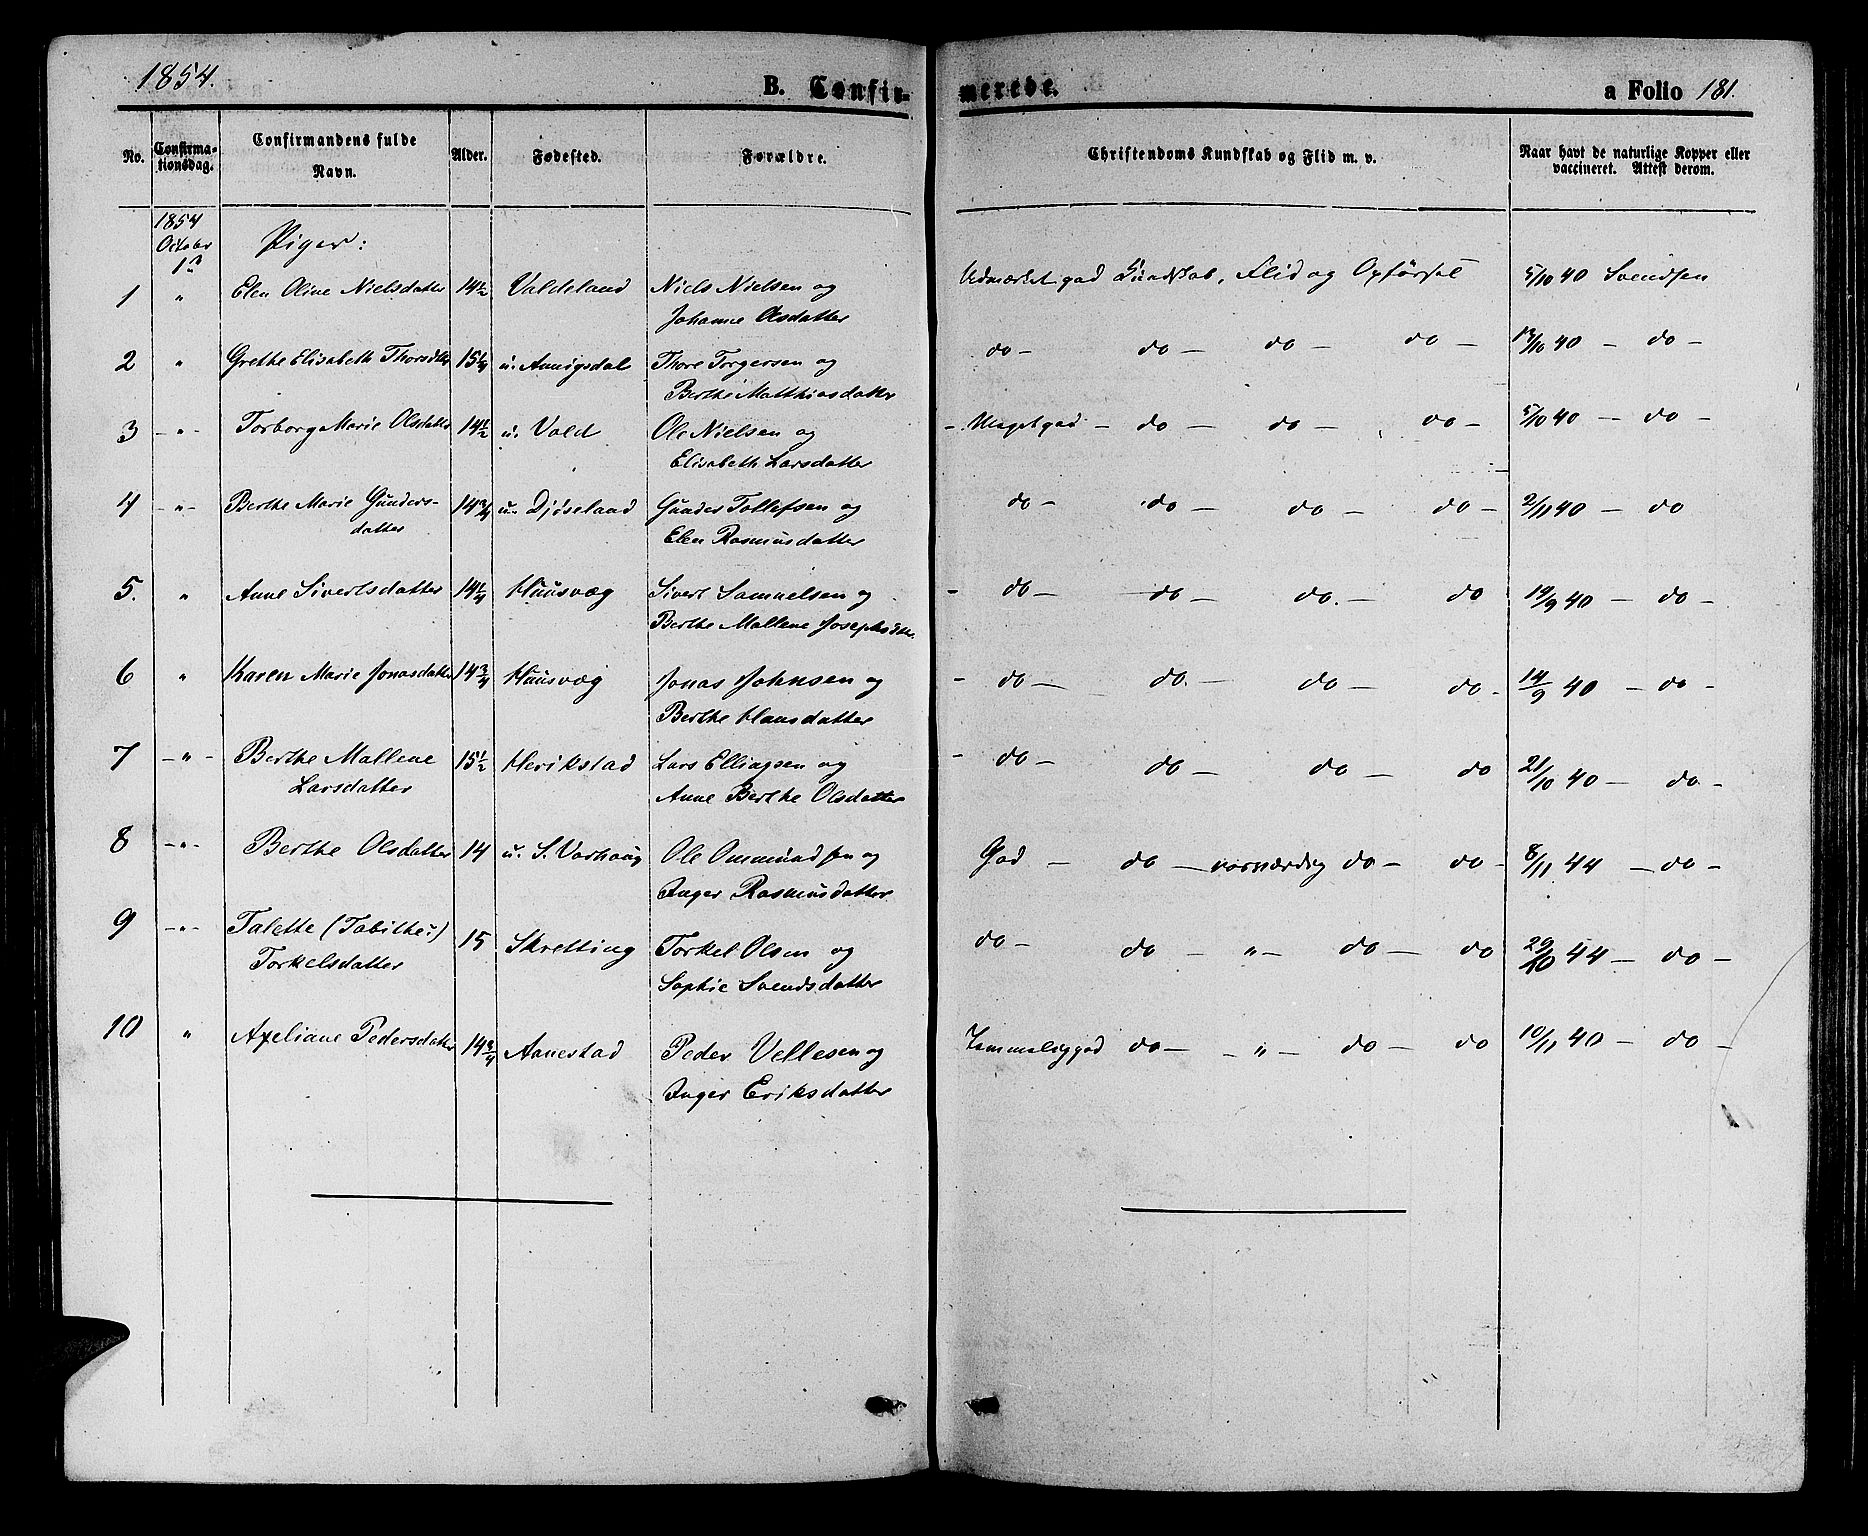 1854.
B. Confir-
merede.
a Folio 181.
No. Confirma-tionsdag. Confirmandens fulde Navn. Alder. Fødested. Forældre. Christendoms Kundskab og Flid m. v. Naar havt de naturlige Kopper eller vaccineret. Attest derom.
1854
October
1ste
Piger:
1 " Elen Olive Nielsdatter 14 1/2 Valdeland Niels Nielsen og Udmærket god Kundskab, Flid og Opførsel 5/10 40 Svendsen
Johanne Olsdatter
2 " Grethe Elisabeth Thorsdtter 15 1/4 u. Aunigsdal Thore Torgersen og do - do - do - do - 13/10 40 - do -
Berthe Matthiasdatter
3 -"- Torborg Marie Olsdatter 14 1/2 u. Vold Ole Nielsen og - Meget god - do - do - do - 5/10 40 - do -
Elisabeth Larsdatter
4 -"- Berthe Marie Gunders- 14 3/4 u. Djøseland Gunder Tollefsen og do - do - do - do - 2/11 40 - do
datter
Elen Rasmusdatter
5. " Anne Sivertsdatter 14 1/4 Huusvæg Sivert Samuelsen og - do - do - do. - do 19/9 40 - do -
Berthe Mallene Josephsdtr.
6 " Karen Marie Jonasdatter 14 3/4 Huusvæg Jonas Johnsen og - do - do. - do - do - 14/9 40 - do -
Berthe Hansdatter
7 -"- Berthe Mallene 15 1/2 Herikstad Lars Ellingsen og - do - do - do - do 21/10 40 - do -
Larsdatter
Anne Berthe Olsdatter
8 -"- Berthe Olsdatter 14 u. S. Varhaug Ole Ommundsen og God - do - værværdig do - do - 8/11 44 - do -
Inger Rasmusdatter
9 -"- Talette (Tabithe?) 15 Skretting Torkel Olsen og do - do - " - do - do 29/10 44 - do -
Torkelsdatter
Sophie Svendsdatter
10 " Axeliane Pedersdatter 14 3/4 Aanestad Peder Vellesen og Temmelig god do - - " - do - do 10/11 40 - do -
Inger Eriksdatter